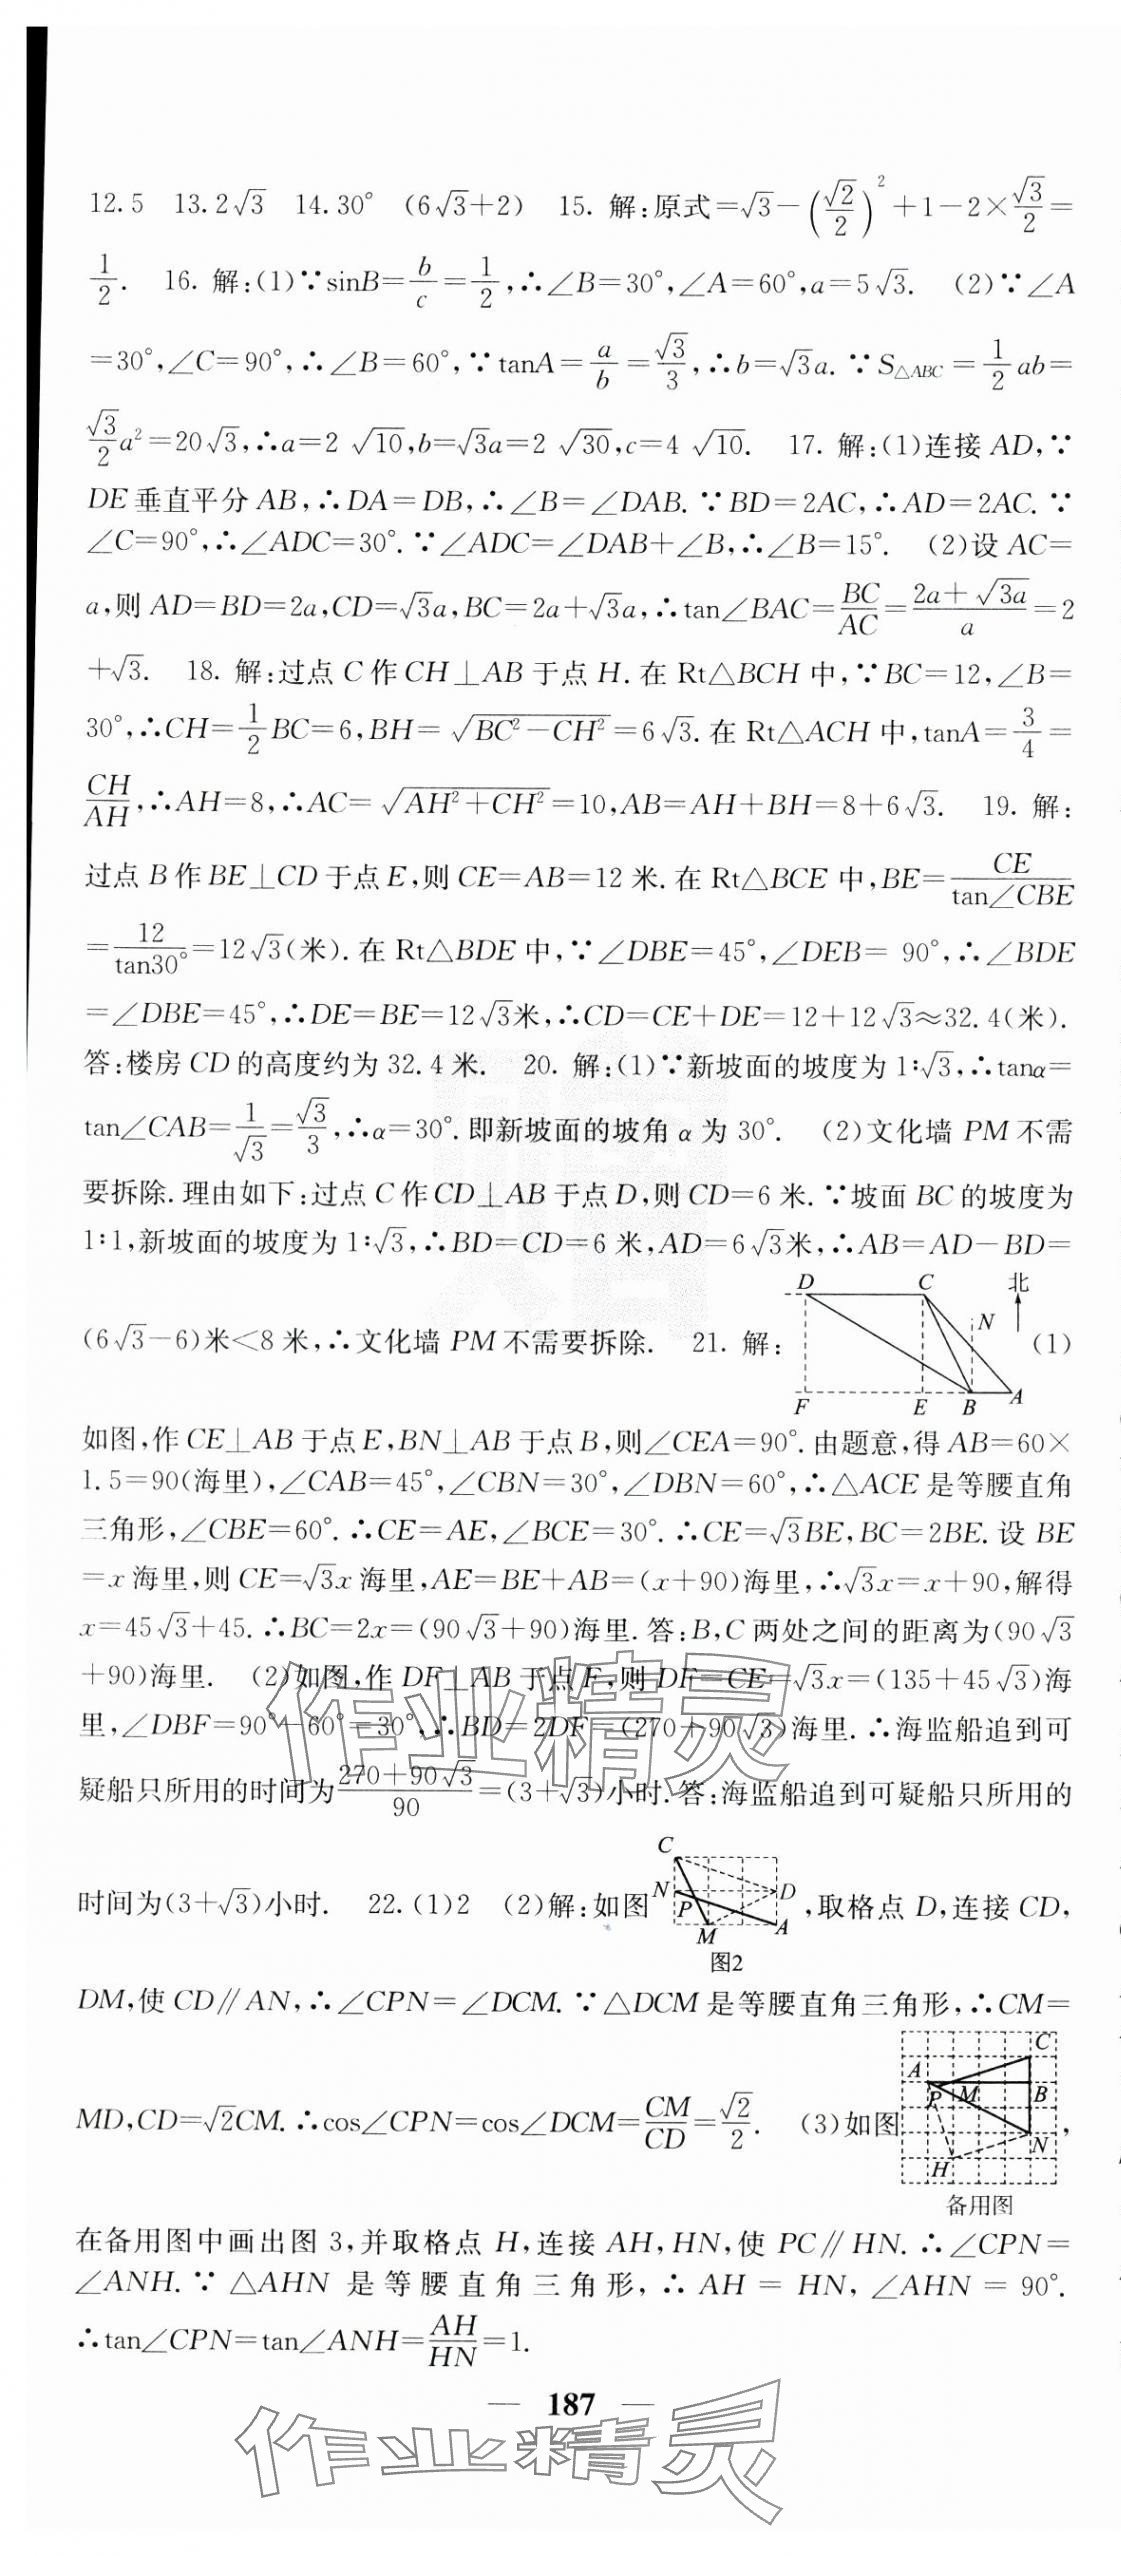 12.5 13.2√3 14.30° (6√3+2) 15. 解:原式=√3-(√2/2)²+1-2×√3/2=
1/2. 16. 解:(1)∵sinB=b/c=1/2,∴∠B=30°,∠A=60°,a=5√3. (2)∵∠A
=30°,∠C=90°,∴∠B=60°,∵tanA=a/b=√3/3,∴b=√3a.∵S△ABC=1/2ab=
√3/2a²=20√3,∴a=2√10,b=√3a=2√30,c=4√10. 17. 解:(1)连接AD,∵
DE垂直平分AB,∴DA=DB,∴∠B=∠DAB.∵BD=2AC,∴AD=2AC.∵
∠C=90°,∴∠ADC=30°.∵∠ADC=∠DAB+∠B,∴∠B=15°. (2)设AC=
a,则AD=BD=2a,CD=√3a,BC=2a+√3a,∴tan∠BAC=BC/AC=(2a+√3a)/a=2
+√3. 18. 解:过点C作CH⊥AB于点H.在Rt△BCH中,∵BC=12,∠B=
30°,∴CH=1/2BC=6,BH=√(BC²-CH²)=6√3.在Rt△ACH中,tanA=3/4=
CH/AH,∴AH=8,∴AC=√(AH²+CH²)=10,AB=AH+BH=8+6√3. 19. 解:
过点B作BE⊥CD于点E,则CE=AB=12米.在Rt△BCE中,BE=CE/tan∠CBE
=12/tan30°=12√3(米).在Rt△BDE中,∵∠DBE=45°,∠DEB=90°,∴∠BDE
=∠DBE=45°,∴DE=BE=12√3米,∴CD=CE+DE=12+12√3≈32.4(米).
答:楼房CD的高度约为32.4米. 20. 解:(1)∵新坡面的坡度为1:√3,∴tanα=
tan∠CAB=1/√3=√3/3,∴α=30°.即新坡面的坡角α为30°. (2)文化墙PM不需
要拆除.理由如下:过点C作CD⊥AB于点D,则CD=6米.∵坡面BC的坡度为
1:1,新坡面的坡度为1:√3,∴BD=CD=6米,AD=6√3米,∴AB=AD-BD=
D C 北
N
(6√3-6)米<8米,∴文化墙PM不需要拆除. 21. 解: (1)
F E B A
如图,作CE⊥AB于点E,BN⊥AB于点B,则∠CEA=90°.由题意,得AB=60×
1.5=90(海里),∠CAB=45°,∠CBN=30°,∠DBN=60°,∴△ACE是等腰直角
三角形,∠CBE=60°.∴CE=AE,∠BCE=30°.∴CE=√3BE,BC=2BE.设BE
=x海里,则CE=√3x海里,AE=BE+AB=(x+90)海里,∴√3x=x+90,解得
x=45√3+45.∴BC=2x=(90√3+90)海里.答:B,C两处之间的距离为(90√3
+90)海里. (2)如图,作DF⊥AB于点F,则DF=CE=√3x=(135+45√3)海
里,∠DBF=90°-60°=30°,∴BD=2DF=(270+90√3)海里.∴海监船追到可
疑船只所用的时间为(270+90√3)/90=(3+√3)小时.答:海监船追到可疑船只所用的
作业精灵
C
N D
时间为(3+√3)小时. 22.(1)2 (2)解:如图 ,取格点D,连接CD,
P
M A
图2
DM,使CD∥AN,∴∠CPN=∠DCM.∵△DCM是等腰直角三角形,∴CM=
C
A
P M B
MD,CD=√2CM.∴cos∠CPN=cos∠DCM=CM/CD=√2/2. (3)如图 ,
N
H
备用图
在备用图中画出图3,并取格点H,连接AH,HN,使PC∥HN.∴∠CPN=
∠ANH.∵△AHN是等腰直角三角形,∴AH=HN,∠AHN=90°.
∴tan∠CPN=tan∠ANH=AH/HN=1.
— 187 —
作业精灵